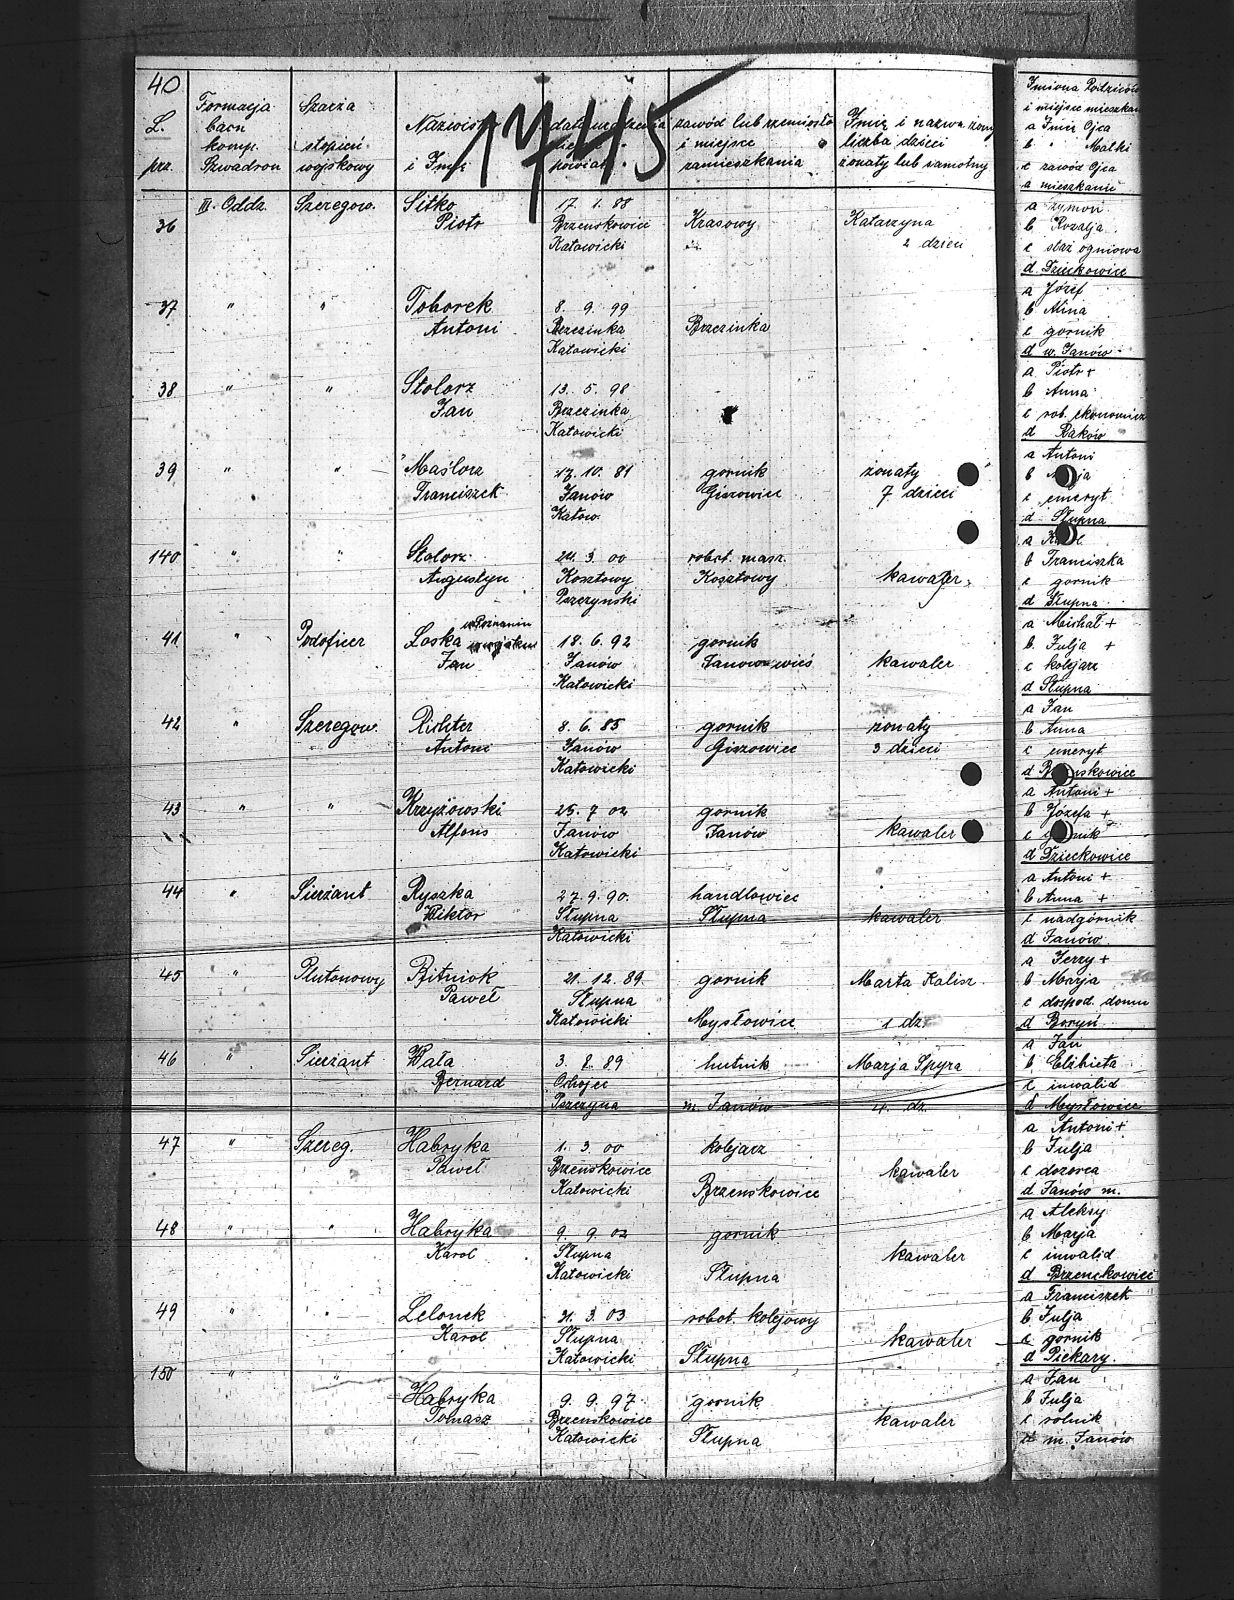 40
1745
L.
prz.
Formacja
baon
komp.
Szwadron
Szarża
stopień
wojskowy
Nazwisko
i Imię
data urodzenia
powiat
zawód lub rzemiosło
i miejsce
zamieszkania
Imię i nazw. żony
liczba dzieci
żonaty lub samotny
Imiona Rodziców
i miejsce mieszkan
a Imię Ojca
b " Matki
c zawód Ojca
d mieszkanie
36 III. Oddz. Szeregow. Sitko 17. 1. 88
Piotr Brzenskowice Krasowy Katarzyna
Katowicki 2 dzieci
a Szymon
b Rozalja
c straż ogniowa
d. Dzieckowice
37 " " Toborek 8. 9. 99
Antoni Brzezinka Brzezinka
Katowicki
a Józef
b Alina
c gornik
d w. Janów
38 " " Stolorz 13. 5. 98
Jan Brzezinka
Katowicki
a Piotr +
b Anna
c rob. ekonomicz
d Raków
39 " " Maślorz 17. 10. 81 gornik żonaty
Franciszek Janów Giszowiec 7 dzieci
Katow.
a Antoni
b
c emeryt
d Słupna
140 " " Stolorz 24. 3. 00 robot. masz.
Augustyn Kosztowy Kosztowy kawaler
Pszczynski
a
b Franciszka
c gornik
d Słupna
41 " Podoficer Loska w Poznaniu 18. 6. 92 gornik
Jan Janów Janów wieś kawaler
Katowicki
a Michał +
b. Julja +
c kolejarz
d Słupna
42 " Szeregow. Richter 8. 6. 85 gornik żonaty
Antoni Janów Giszowiec 3 dzieci
Katowicki
a Jan
b Anna
c emeryt
d
43 " " Krzyżowski 25. 7 02 gornik
Alfons Janów Janów kawaler
Katowicki
a Antoni +
b Józefa +
c gornik
d Dzieckowice
44 " Sierżant Ryszka 27. 9. 90. handlowiec
Wiktor Słupna Słupna kawaler
Katowicki
a Antoni +
b Anna +
c nadgórnik
d Janów
45 " Plutonowy Bitniok 21. 12. 89. gornik Marta Kalisz
Paweł Słupna
Katowicki Mysłowice 1 dz.
a Jerzy +
b Marja
c dospod. domu
d Boryń
46 " Sierżant Wala 3. 8. 89 hutnik Marja Spyra
Bernard Ochojec
Pszczyna m. Janów 4. dz.
a Jan
b Elżbieta
c inwalid
d Mysłowice
47 " Szereg. Habryka 1. 3. 00 kolejarz
Paweł Brzenskowice kawaler
Katowicki Brzenskowice
a Antoni +
b Julja
c dozorca
d Janów m.
48 " " Habryka 9. 9. 02 gornik
Karol Słupna kawaler
Katowicki Słupna
a Aleksy
b Marja
c inwalid
d Brzenckowice
49 " " Lelonek 21. 3. 03 robot. kolejowy
Karol Słupna kawaler
Katowicki Słupna
a Franciszek
b Julja
c gornik
d Piekary.
150 " "
Habryka 9. 9. 97 gornik
Tomasz Brzenskowice kawaler
Katowicki Słupna
a Jan
b Julja
c rolnik
d m. Janów